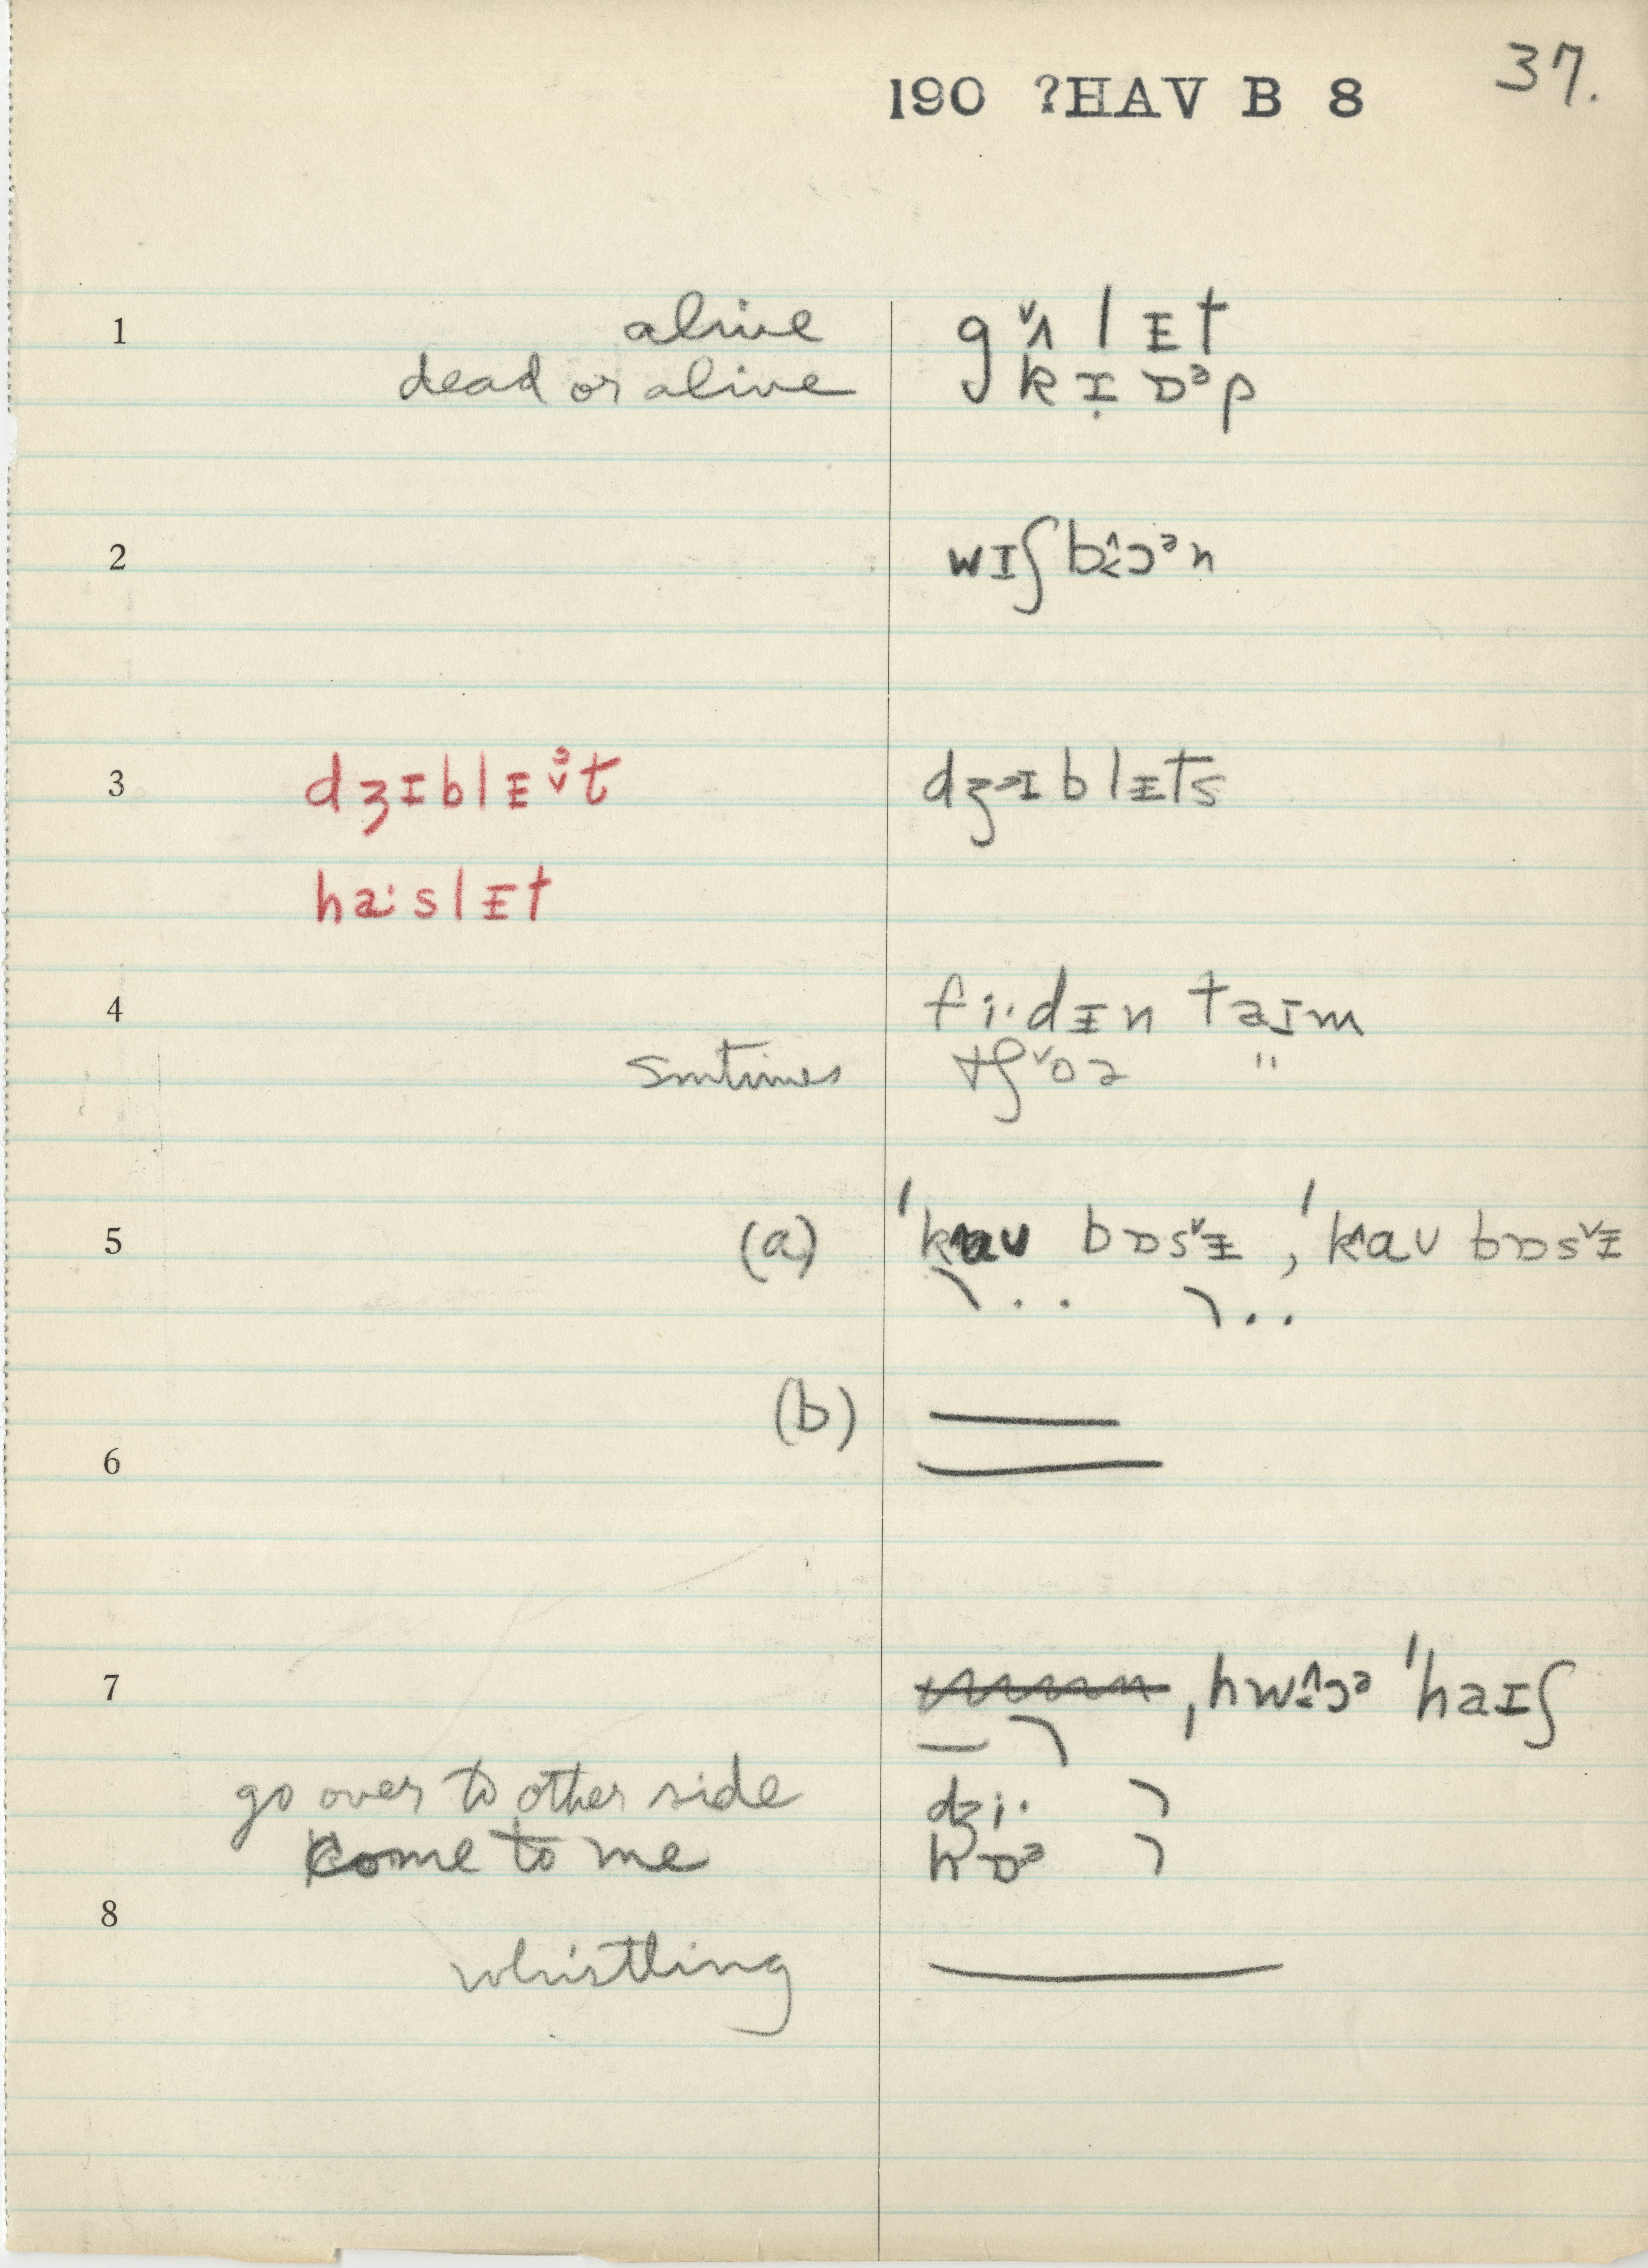 37.
190 ?HAV B 8
1 alive gᵛʌlᵻt
dead or alive kɪ̣ɒᵊp
2 wɪʃbɔᵊn
3 dʒɪblᵻᵊt dʒɪblᵻts
haːslᵻt
4 fiːdᵻn taɪm
smtimes tʃᵛoə "
5 (a) ˈk^aʊ bɒsᵛᵻ, ˈk^aʊ bɒsᵛᵻ
(b)
6
7 ˌhwɔᵊ ˈhaɪʃ
go over to other side dʒiː
come to me hɒᵊ
8
whistling